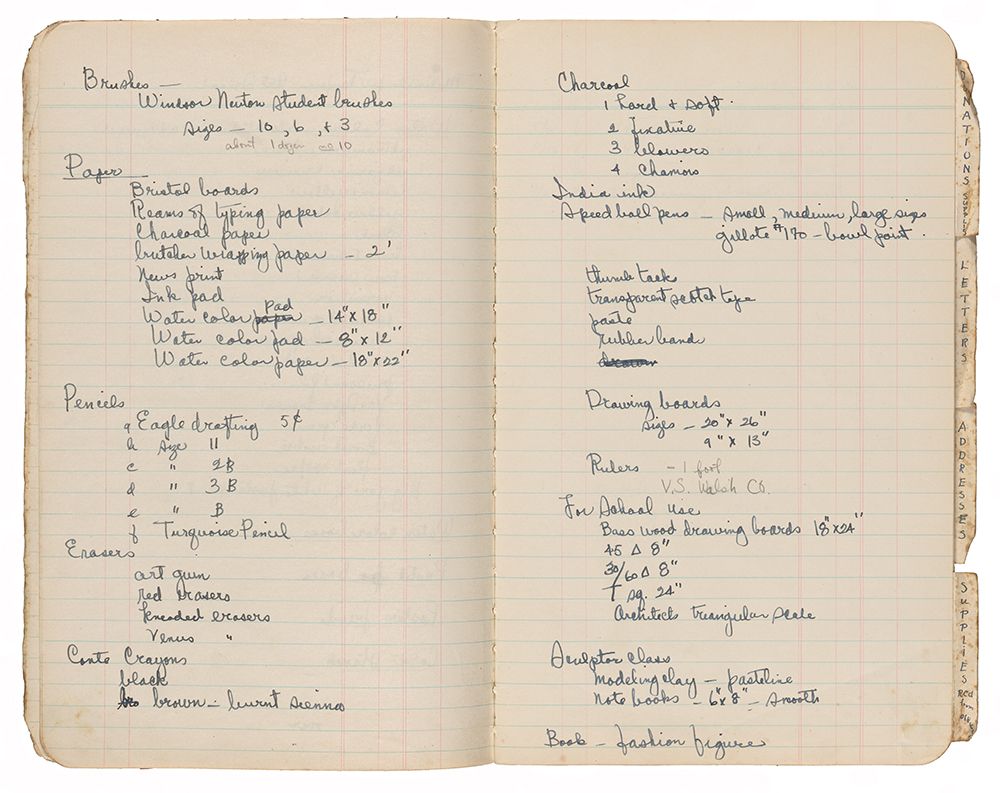 Brushes —
Windsor Newton student brushes
sizes — 10, 6, + 3
about 1 dozen no 10
Paper
Bristol boards
Reams of typing paper
Charcoal paper
butcher wrapping paper — 2'
News print
Ink pad
Water color paper pad — 14" x 18"
Water color pad — 8" x 12"
Water color paper — 18" x 22"
Pencils
a Eagle drafting 5¢
b size 11
c " 2B
d " 3B
e " B
f Turquoise Pencil
Erasers
art gum
red erasers
kneaded erasers
Venus "
Conte Crayons
black
bro brown — burnt sienna
Charcoal
1 hard + soft.
2 fixative
3 blowers
4 Chamois
India ink
Speed ball pens — small, medium, large sizes
gillote #170 — bowl point.
thumb tack
transparent scotch tape
paste
rubber band
Drawing boards
sizes — 20" x 26"
9" x 13"
Rulers — 1 foot
V.S. Walsh Co.
For School use
Bass wood drawing boards 18" x 24"
45 Δ 8"
30/60 Δ 8"
T sq. 24"
Architects triangular scale
Sculptor class
modeling clay — pasteline
note books — 6" x 8" — smooth
Book — fashion figure
NATIONS SUPPLY
LETTERS
ADDRESSES
SUPPLIES REC'd from